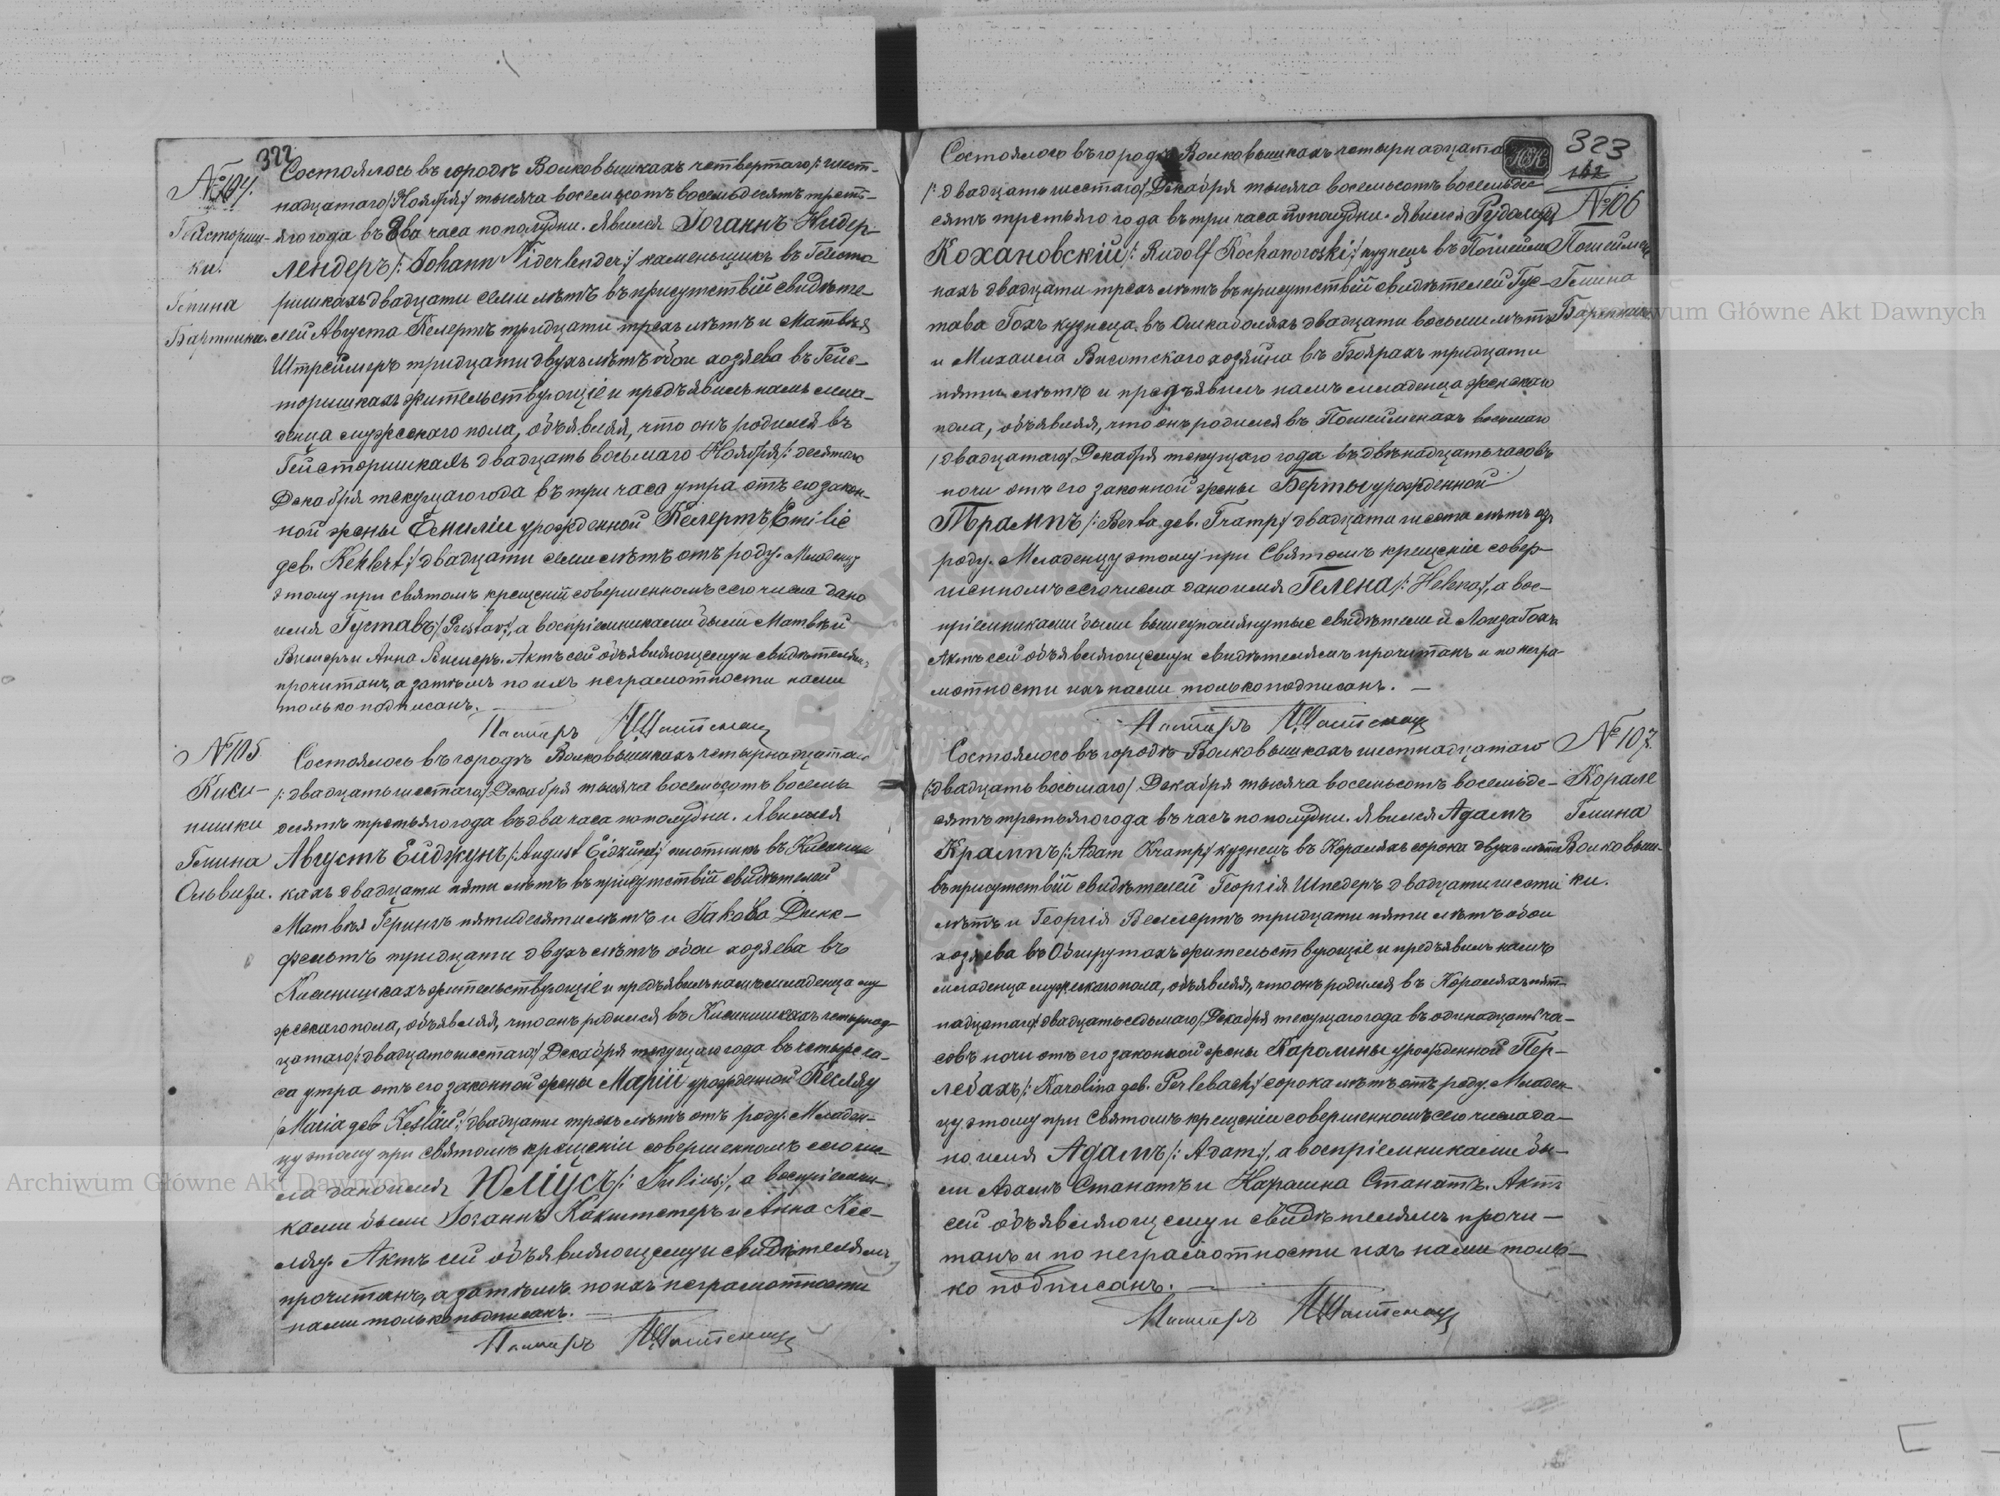 322
№ 104.
Гейсториш-
ки.
Гмина
Бартники.
Состоялось въ городѣ Волковышкахъ четвертаго /: шест-
надцатаго :/ Ноября тысяча восемьсотъ восемьдесятъ треть-
яго года въ два часа пополудни. Явился Іоганнъ Нидер-
лендеръ /: Johann Niderlender :/ каменьщикъ въ Гейсто-
ришкахъ двадцати семи лѣтъ въ присутствіи свидѣте-
лей Августа Келертъ тридцати трехъ лѣтъ и Матвѣя
Штреймеръ тридцати двухъ лѣтъ обои хозяева въ Гейс-
торишкахъ жительствующіе и предъявилъ намъ мла-
денца мужескаго пола, объявляя, что онъ родился въ
Гейсторишкахъ двадцать восьмаго Ноября /: десятаго
Декабря текущаго года въ три часа утра отъ его закон-
ной жены Емиліи урожденной Келертъ Emilie
geb. Kehlert :/ двадцати семи лѣтъ отъ роду. Младенцу
этому при святомъ крещеніи совершенномъ сего числа дано
имя Густавъ /: Gustav :/, а воспріемниками были Матвѣй
и Анна Актъ сей объявляющему и свидѣтелямъ
прочитанъ, а затѣмъ по ихъ неграмотности нами
только подписанъ.
Пасторъ
№ 105
Киси-
нишки
Гмина
Ольвита.
Состоялось въ городѣ Волковышкахъ четырнадцатаго
/: двадцать шестаго :/ Декабря тысяча восемьсотъ восемь-
десятъ третьяго года въ два часа пополудни. Явился
Августъ Ейджунъ /: August Eidžun :/ плотникъ въ Кисиниш-
кахъ двадцати пяти лѣтъ въ присутствіи свидѣтелей
Матвѣя Герингъ пятидесяти лѣтъ и Іакова Динк-
фельтъ тридцати двухъ лѣтъ обои хозяева въ
Кисинишкахъ жительствующіе и предъявилъ намъ младенца му-
жескаго пола, объявляя, что онъ родился въ Кисинишкахъ четырнад-
цатаго /: двадцать шестаго :/ Декабря текущаго года въ четыре ча-
са утра отъ его законной жены Маріи урожденной Кесляу
/ Maria geb. Keslau :/ двадцати трехъ лѣтъ отъ роду. Младен-
цу этому при святомъ крещеніи совершенномъ сего чис-
ла дано имя Юліусъ /: Julius :/, а воспріемни-
ками были Іоганнъ и Анна Кес-
ляу. Актъ сей объявляющему и свидѣтелямъ
прочитанъ, а затѣмъ по ихъ неграмотности
нами только подписанъ.
Пасторъ
323
142
№ 106
Гмина
Состоялось въ городѣ Волковышкахъ четырнадцатаго
/: двадцать шестаго :/ Декабря тысяча восемьсотъ восемьде-
сятъ третьяго года въ три часа пополудни. Явился Рудольфъ
Кохановскій /: Rudolf Kochanowski :/ кузнецъ въ
двадцати трехъ лѣтъ въ присутствіи свидѣтелей Гус-
тава Гохъ кузнеца въ двадцати восьми лѣтъ
и Михаила Висотскаго хозяина въ Боярахъ тридцати
пяти лѣтъ и предъявилъ намъ младенца женскаго
пола, объявляя, что онъ родился въ восьмаго
/ двадцатаго / Декабря текущаго года въ двѣнадцать часовъ
ночи отъ его законной жены Берты урожденной
Трампъ /: Berta geb. Tramp :/ двадцати шести лѣтъ отъ
роду. Младенцу этому при Святомъ крещеніи совер-
шенномъ сего числа дано имя Гелена /: Helena :/, а вос-
пріемниками были вышеупомянутые свидѣтели и Лоиза Гохъ.
Актъ сей объявляющему и свидѣтелямъ прочитанъ и по негра-
мотности ихъ нами только подписанъ.
Пасторъ
№ 107.
Корале
Гмина
Волковыш-
ки.
Состоялось въ городѣ Волковышкахъ шестнадцатаго
/: двадцать восьмаго / Декабря тысяча восемьсотъ восемьде-
сятъ третьяго года въ часъ пополудни. Явился Адамъ
Крампъ /: Adam Kramp :/ кузнецъ въ Кораляхъ сорока двухъ лѣтъ
въ присутствіи свидѣтелей Георгія Шнедеръ двадцати шести
лѣтъ и Георгія Веллертъ тридцати пяти лѣтъ обои
хозяева въ Обшрутахъ жительствующіе и предъявилъ намъ
младенца мужескаго пола, объявляя, что онъ родился въ Кораляхъ пят-
надцатаго / двадцать седьмаго / Декабря текущаго года въ одинадцать ча-
совъ ночи отъ его законной жены Каролины урожденной Пер-
лебахъ /: Karolina geb. Perlebach :/ сорока лѣтъ отъ роду. Младен-
цу этому при Святомъ крещеніи совершенномъ сего числа да-
но имя Адамъ /: Adam :/, а воспріемниками бы-
ли Адамъ Станатъ и Каролина Станатъ. Актъ
сей объявляющему и свидѣтелямъ прочи-
танъ и по неграмотности ихъ нами толь-
ко подписанъ.
Пасторъ
Archiwum Główne Akt Dawnych
Archiwum Główne Akt Dawnych